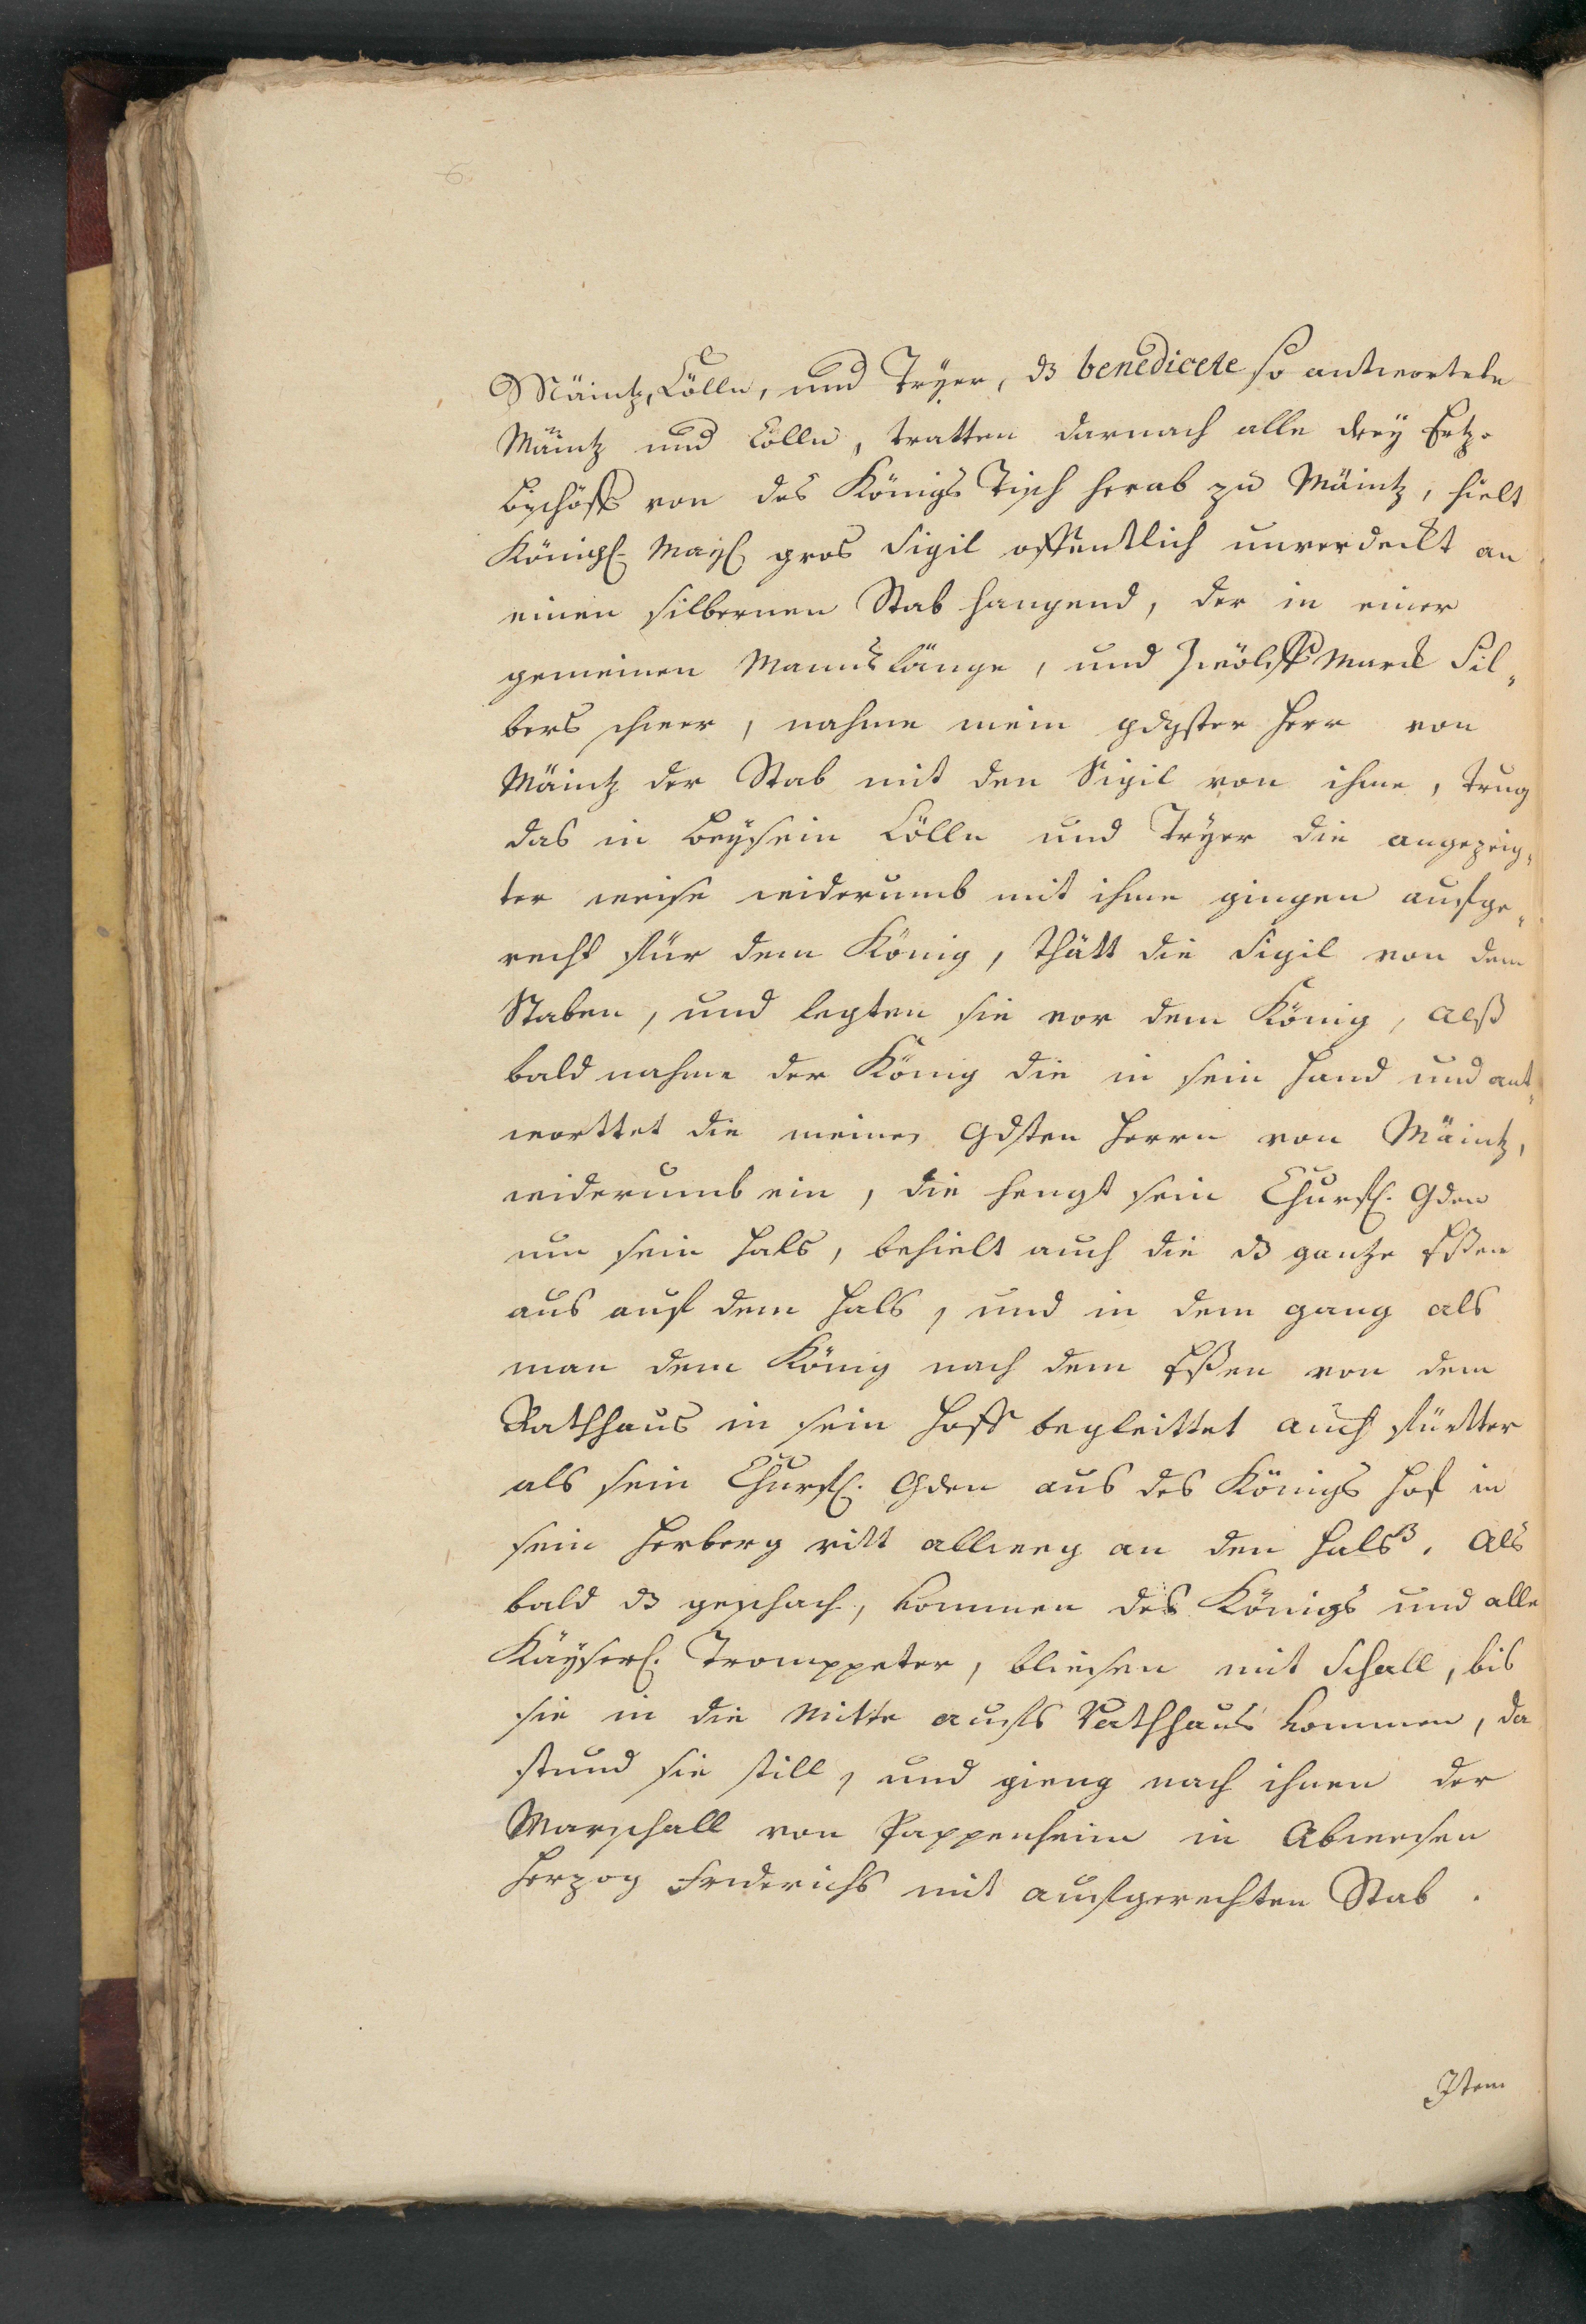 Mäintz, Cölln, und Tryer, dz benedicete so antwortete
Mäintz und Cölln, tratten darnach alle drey Ertz-
bischöff von des Königs Tisch herab zu Mäintz, hielt
Königl. Mayl. gros Sigil offentlich unverdeckt an
einen silbernen Stab hangend, der in einer
gemeinen Manns länge, und Zwölff Marck Sil-
bers schwer, nahme mein gdgster Herr von
Mäintz der Stab mit den Sigil von ihme, trug
das in beysein Cölln und Tryer die angezeig-
ter weise widerumb mit ihme gingen aufge-
recht für dem König, thätt die Sigil von dem
Staben, und legten sie vor dem König, alß
bald nahme der König die in sein Hand und ant-
worttet die meines Gdsten Herrn von Mäintz,
widerumb ein, die hengt sein Churfl. Gden
um sein Hals, behielt auch die dz gantze Eßen
aus auf dem Hals, und in dem gang als
man dem König nach dem Eßen von dem
Rathhaus in sein Hoff begleittet auch fürtter
als sein Churfl. Gden aus des Königs Hof in
sein Herberg ritt allweg an den Halß. Als
bald dz geschach, kommen des Königs und alle
Käyserl. Trompeter, bliesen mit Schall, bis
sie in die Mitte aufs Rathhaus kommen, da
stund sie still, und gieng nach ihnen der
Marschall von Pappenheim in Abwesen
Herzog Friderichs mit aufgerechten Stab.
Item